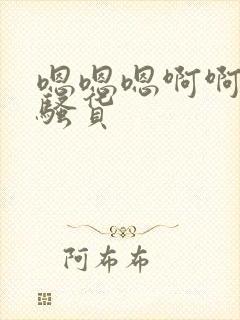 嗯嗯嗯啊啊
骚货
阿布布